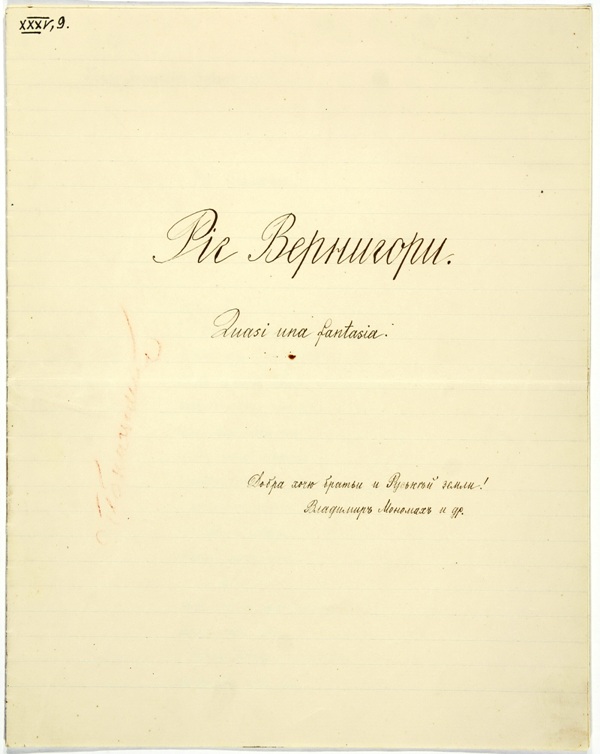 XXXV, 9.
Ріг Вернигори.
Quasi una fantasia.
Добра хочю братьи и Русьскѣй земли!
Владимиръ Мономахъ и др.